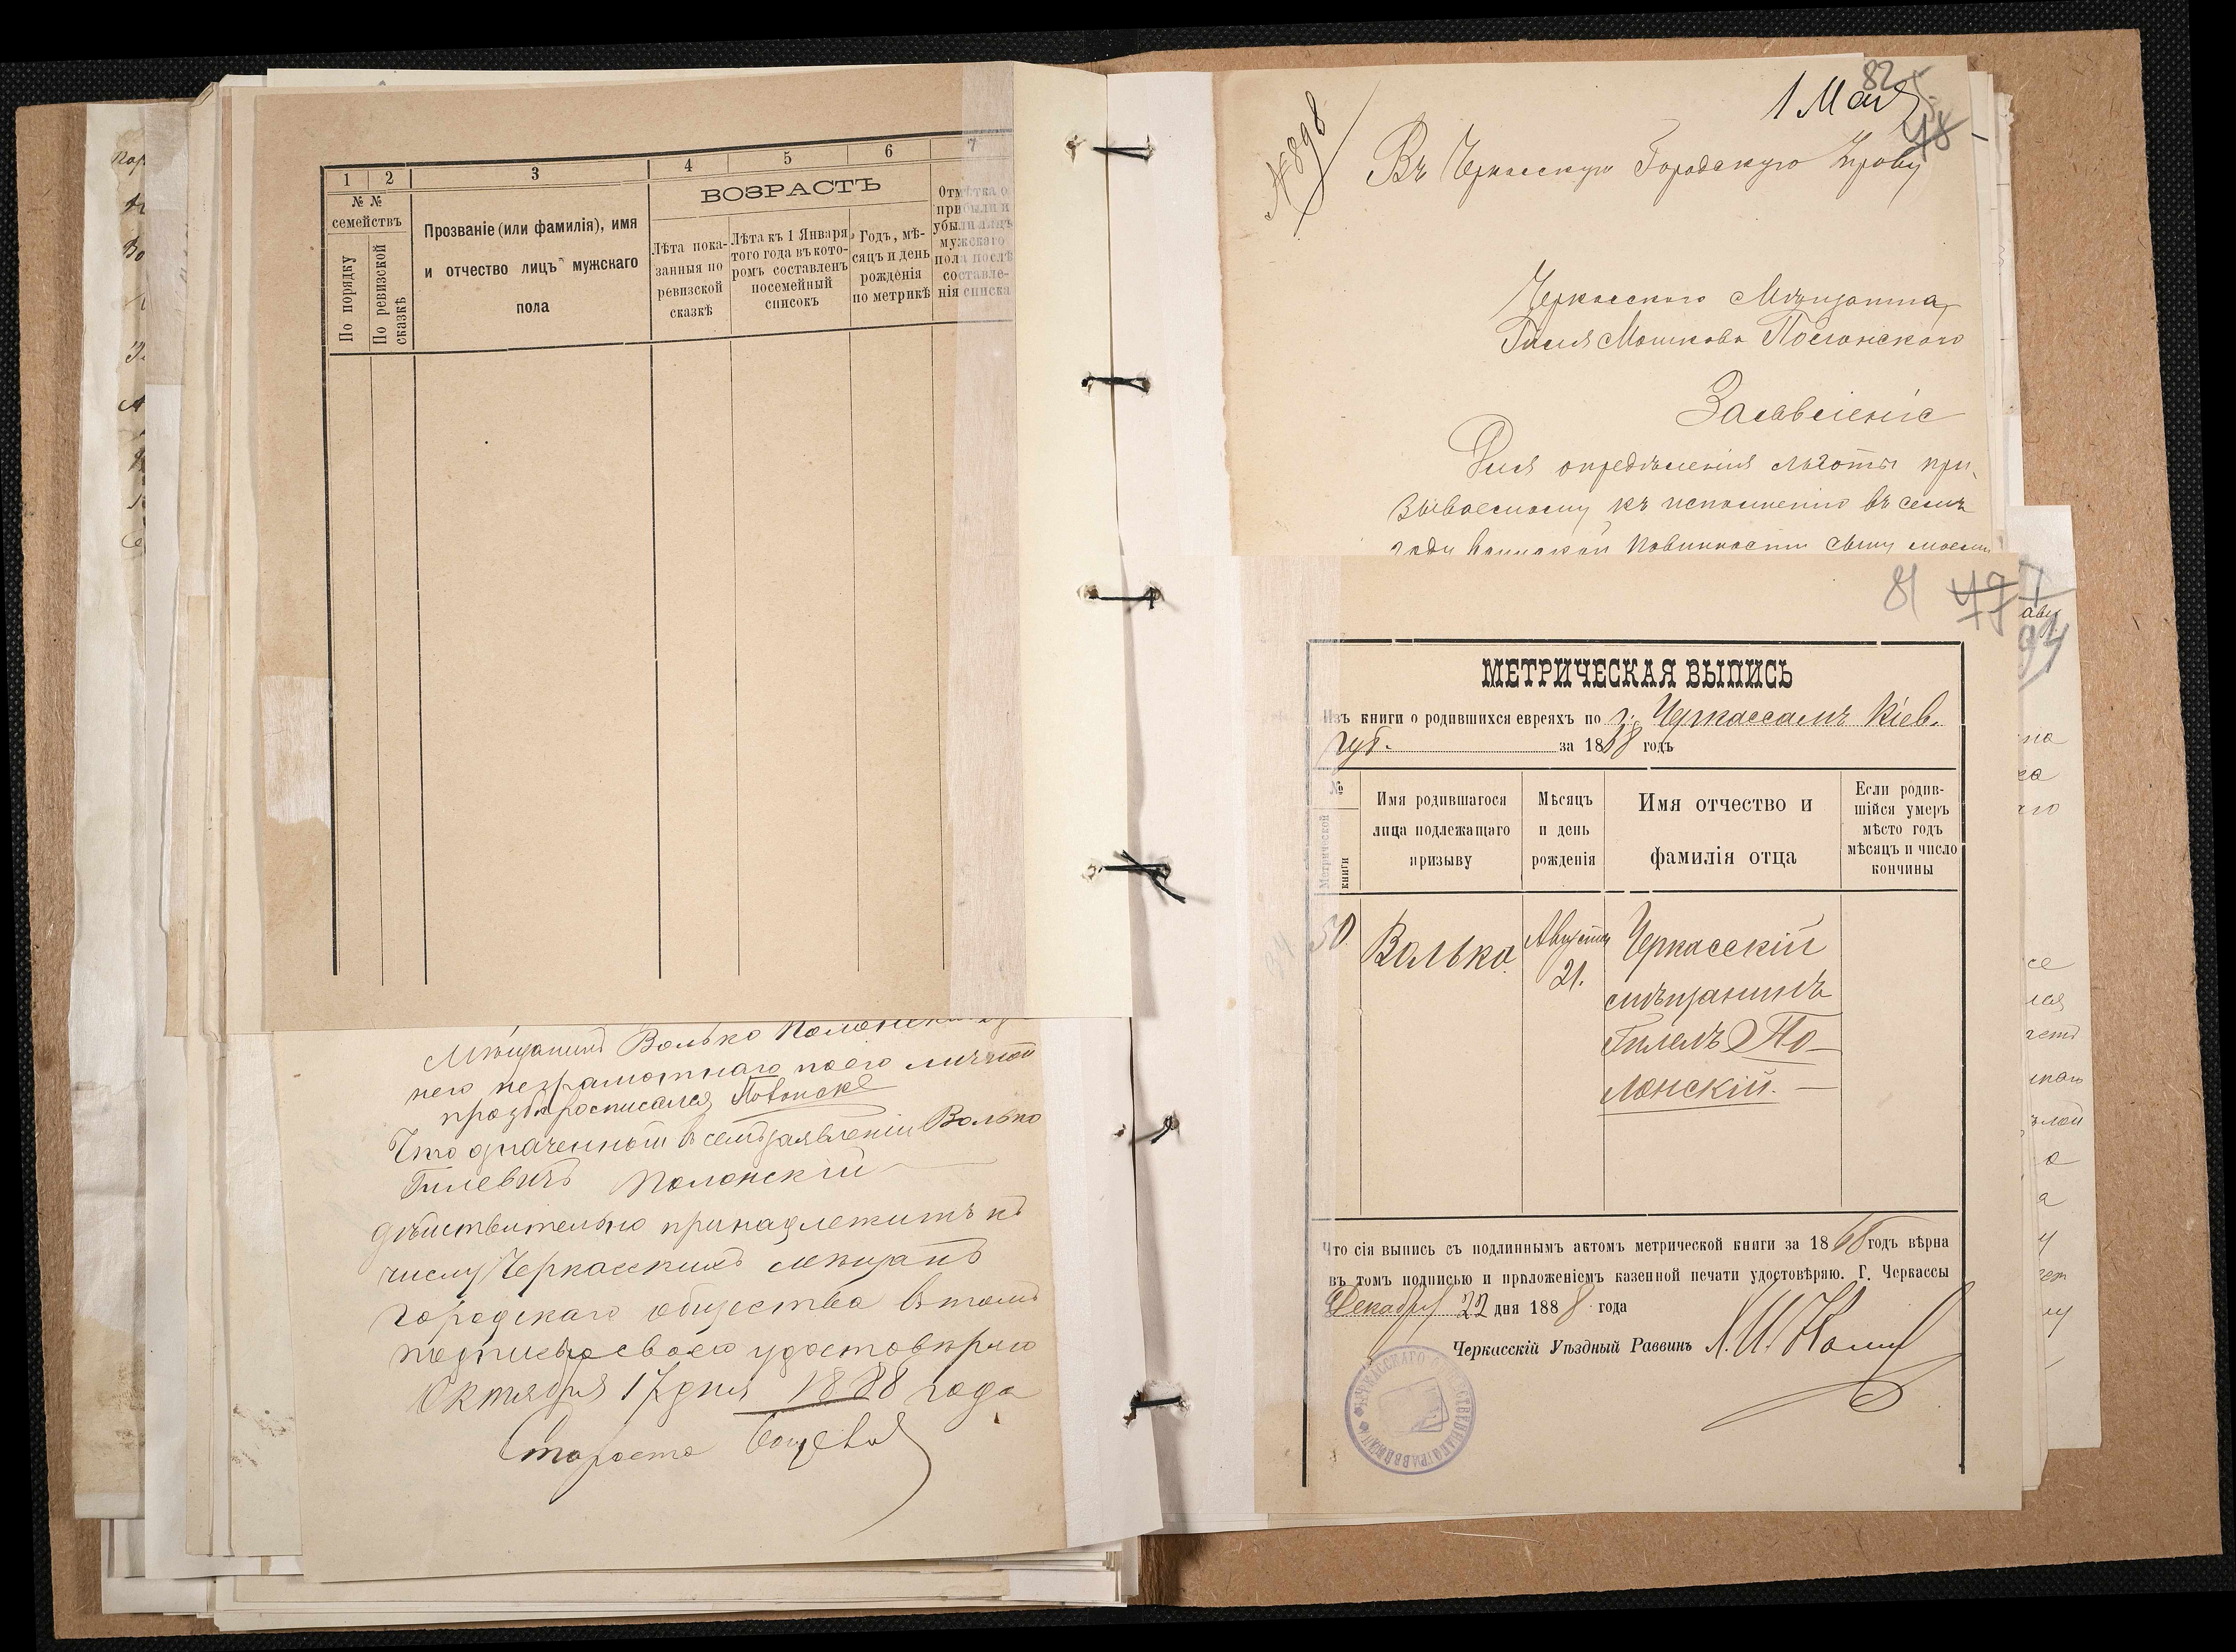 1 2 3 4 5 6 7
№ №
семействъ
По порядку
По ревизской
сказкѣ
Прозваніе (или фамилія), имя
и отчество лицъ мужскаго
пола
ВОЗРАСТЪ
Лѣта пока-
занныя по
ревизской
сказкѣ
Лѣта къ 1 Января
того года въ кото-
ромъ составленъ
посемейный
списокъ
Годъ, мѣ-
сяцъ и день
рожденія
по метрикѣ
Отмѣтка о
прибыли и
убыли лицъ
мужскаго
пола послѣ
составле-
нія списка
Мѣщанинъ Волько Полонскій
него неграмотнаго по его личной
прозьбѣ росписался
Что означенный в семъ заявленіи Волько
Гилевичъ Полонскій
дѣйствительно принадлежитъ къ
числу Черкасскихъ мѣщанъ
городскаго общества в томъ
подписью своею удостовѣряю
Октября 17 дня 1888 года
Староста
82
1 Мая
48
№ 898
Въ Черкасскую Городскую Управу
Черкасского Мѣщанина
Гилея Мошкова Полонского
Заявленіе
Для опредѣленія льготы при-
зываемому къ исполненію въ семъ
году воинской повинности сыну моему
81 47
94
МЕТРИЧЕСКАЯ ВЫПИСЬ
Изъ книги о родившихся евреяхъ по г. Черкассамъ Кіев.
губ. за 1868 годъ
№
Метрической
книги
Имя родившагося
лица подлежащаго
призыву
Мѣсяцъ
и день
рожденія
Имя отчество и
фамилія отца
Если родив-
шійся умеръ
мѣсто годъ
мѣсяцъ и число
кончины
50. Волько Августа
21.
Черкасскій
мѣщанинъ
Гилель По-
лонскій. —
Что сія выпись съ подлиннымъ актомъ метрической книги за 1868 годъ вѣрна
въ томъ подписью и приложеніемъ казенной печати удостовѣряю. Г. Черкассы
Декабря 22 дня 1888 года
Черкасскій Уѣздный Раввинъ